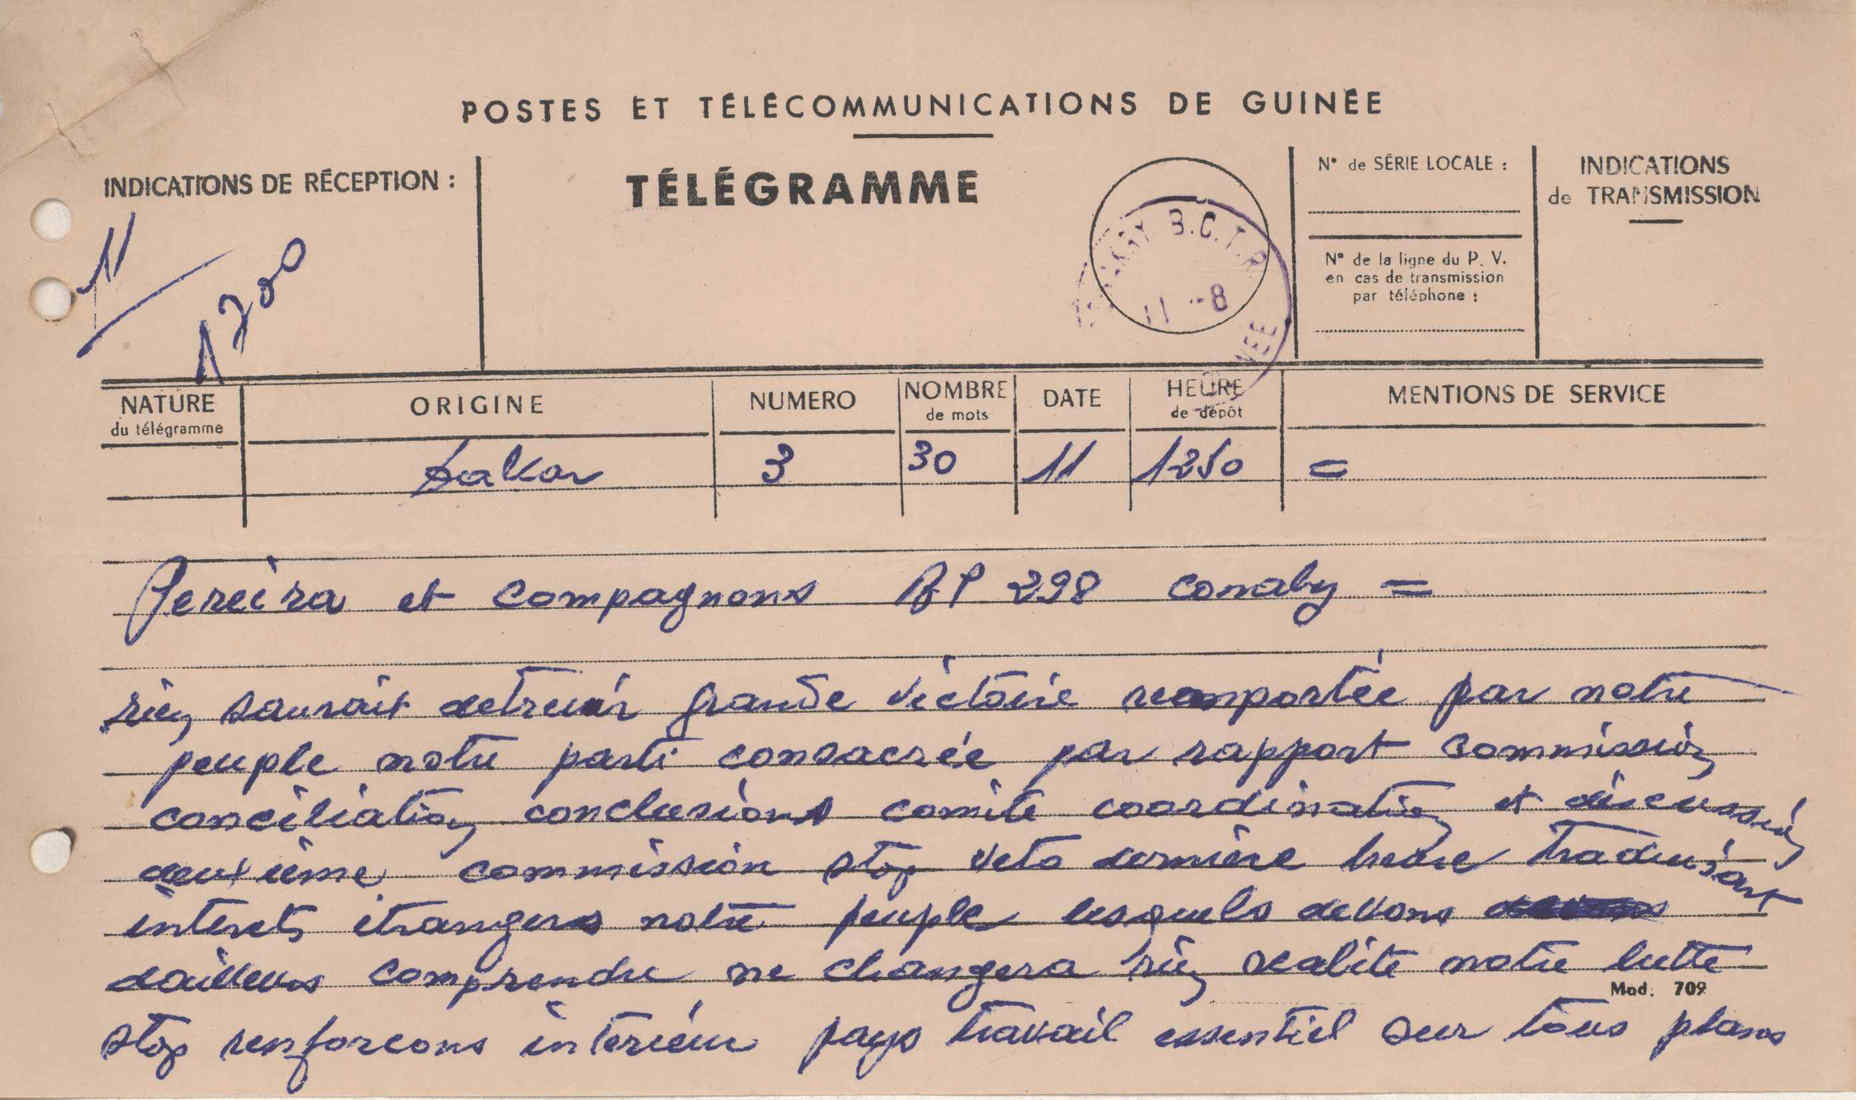 POSTES ET TÉLÉCOMMUNICATIONS DE GUINÉE
INDICATIONS DE RÉCEPTION :
11
1700
TÉLÉGRAMME
B.C.T.R.
11 -8
N° de SÉRIE LOCALE :
N° de la ligne du P. V.
en cas de transmission
par téléphone :
INDICATIONS
de TRANSMISSION
NATURE
du télégramme
ORIGINE
NUMERO
NOMBRE
de mots
DATE
HEURE
de dépôt
MENTIONS DE SERVICE
Dakar 3 30 11 1250 =
Pereira et compagnons BP 298 conaky =
rien saurait detruir grande victoire remportée par notre
peuple notre parti consacrée par rapport commission
conciliation conclusions comite coordination et discussion
deuxieme commission stop veto derniere heure traduisant
interets etrangers notre peuple lesquels devons
dailleurs comprendre ne changera rien realite notre lutte
Mod. 709
stop renforcons interieur pays travail essentiel sur tous plans